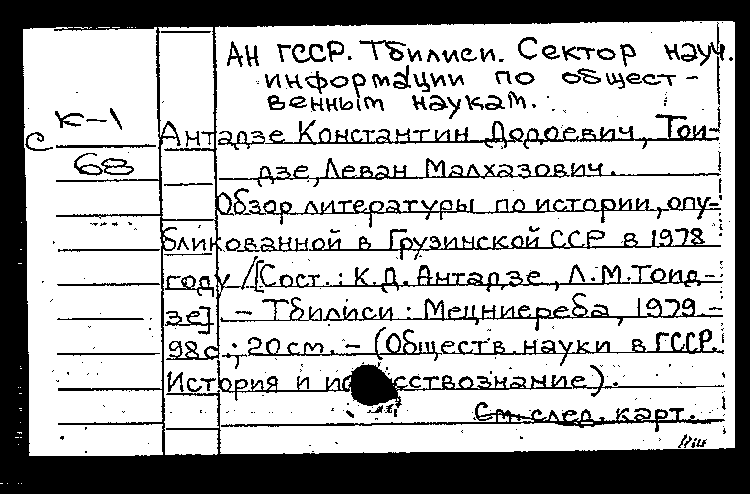 АН ГССР. Тбилиси. Сектор науч.
информации по общест-
венным наукам.
К-1
с
68
Антадзе Константин Додоевич, Тои-
дзе, Леван Малхазович.
Обзор литературы по истории, опу-
бликованной в Грузинской ССР в 1978
году / [Сост.: К.Д. Антадзе, Л.М. Тоид-
зе] – Тбилиси: Мецниереба, 1979.-
98с.; 20см. – (Обществ. науки в ГССР.
История и ис сствознание).
См. след. карт.